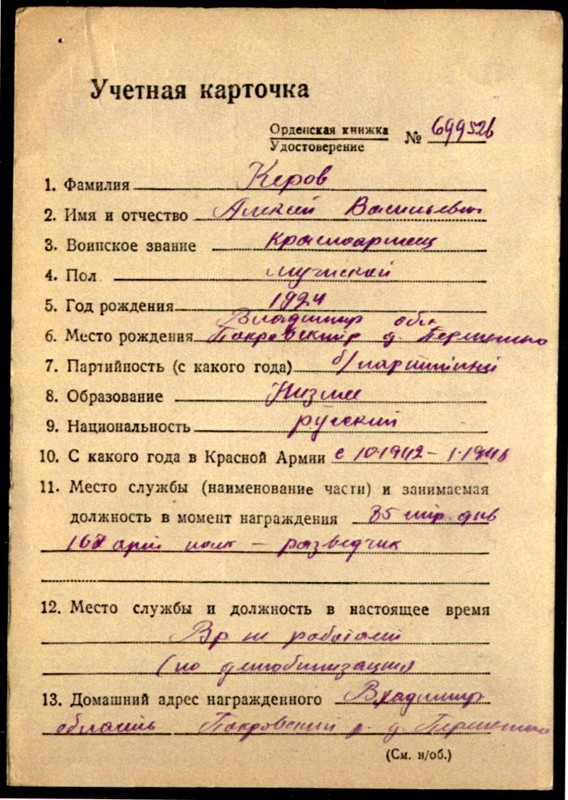 Учетная карточка
Орденская книжка
Удостоверение
№ 699526
1. Фамилия Керов
2. Имя и отчество Алексей Васильевич
3. Воинское звание красноармеец
4. Пол мужской
5. Год рождения 1924
Владимир обл
6. Место рождения Покровский р д.
7. Партийность (с какого года) б/партийный
8. Образование Низшее
9. Национальность русский
10. С какого года в Красной Армии с 10·1942 – 1·1946
11. Место службы (наименование части) и занимаемая
должность в момент награждения 85 див
арт полк – разведчик
12. Место службы и должность в настоящее время
Вр не работает
(по демобилизации)
13. Домашний адрес награжденного Владимир
область Покровский р. д.
(См. н/об.)